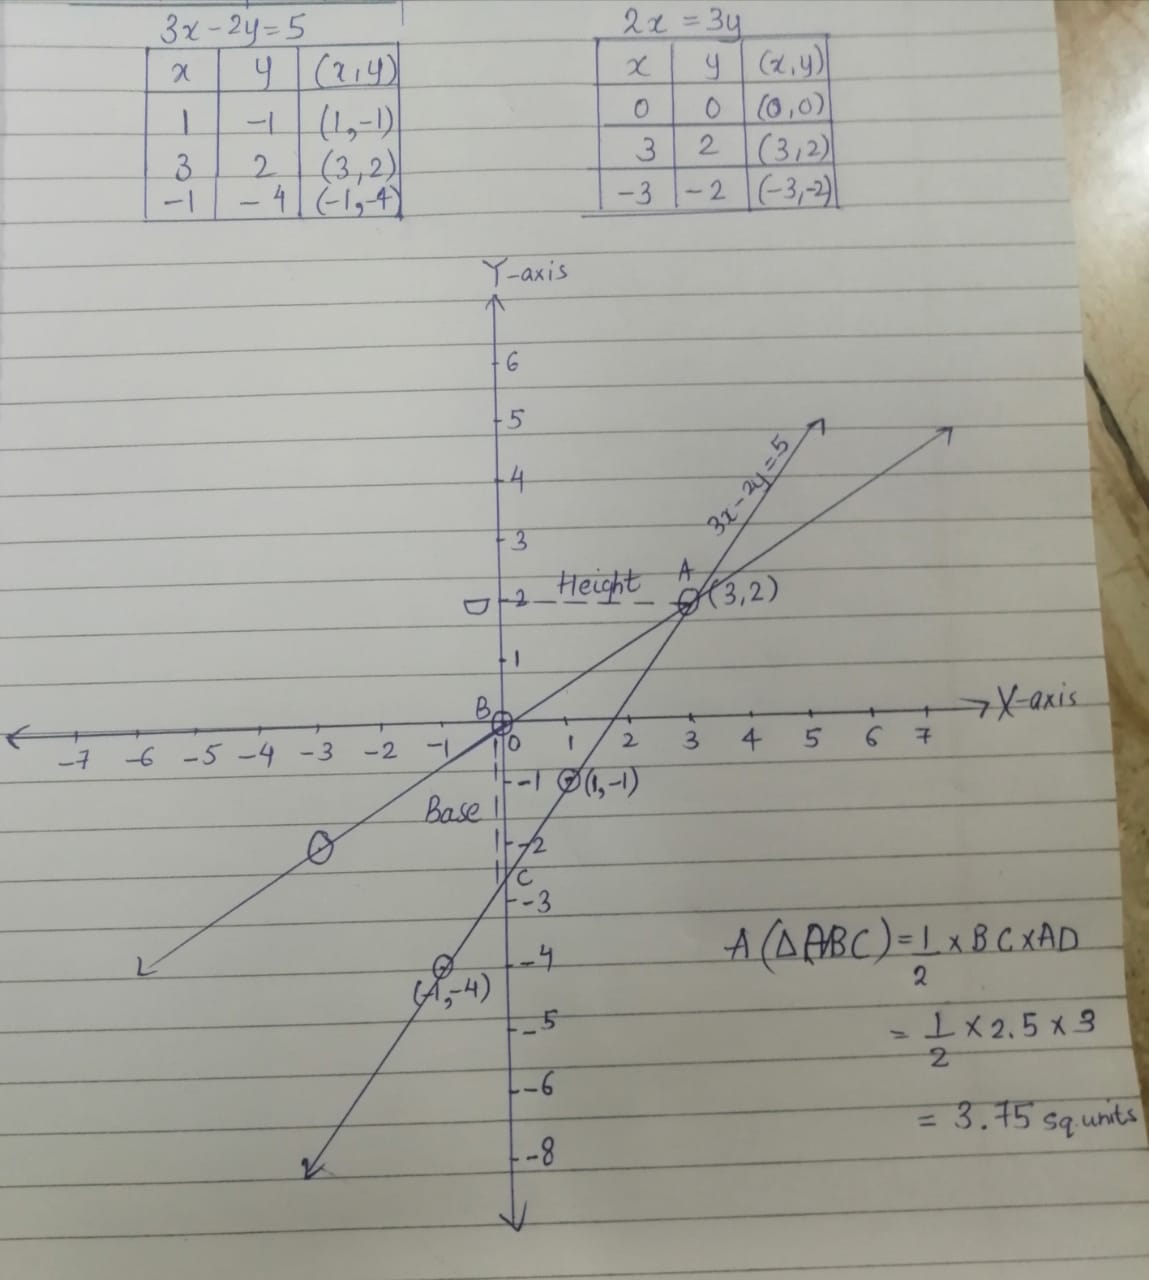 3x-2y=5
x y (x,y)
1 -1 (1,-1)
3 2 (3,2)
-1 -4 (-1,-4)
2x = 3y
x y (x,y)
0 0 (0,0)
3 2 (3,2)
-3 -2 (-3,-2)
Y-axis
6
5
4
3x-2y=5
3
Height
A
D
2
(3,2)
1
B
X-axis
-7 -6 -5 -4 -3 -2 -1 0 1 2 3 4 5 6 7
-1 (1,-1)
Base
-2
C
-3
-4
(-1,-4)
-5
-6
-8
A(ΔABC)=1/2 x BC x AD
= 1/2 x 2.5 x 3
= 3.75 sq.units